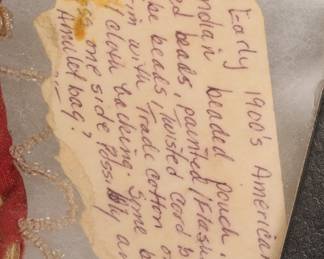 Early 1900's American
Indian beaded pouch,
ed beads, painted/
ke beads, Twisted cord
m with Trade cotton
/cloth backing. Some
one side Possibly an
Amulet bag?